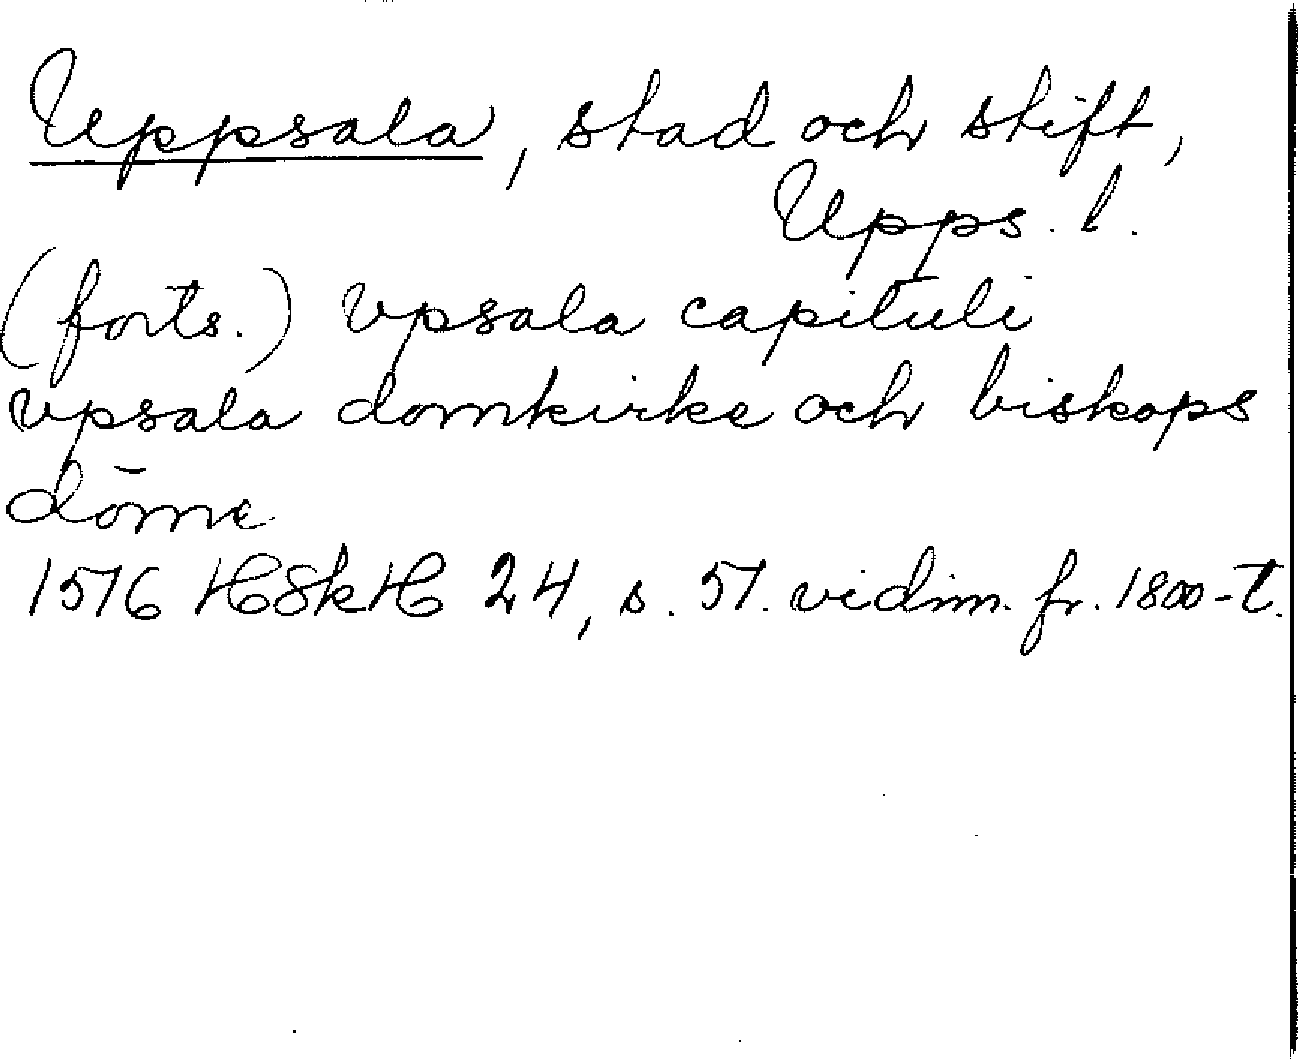 Uppsala, stad och stift,
Upps. l.
(forts.) vpsala capituli
vpsala domkirke och biskops
döme
1576 HSkH 24, s. 57. vidim. fr. 1800-t.